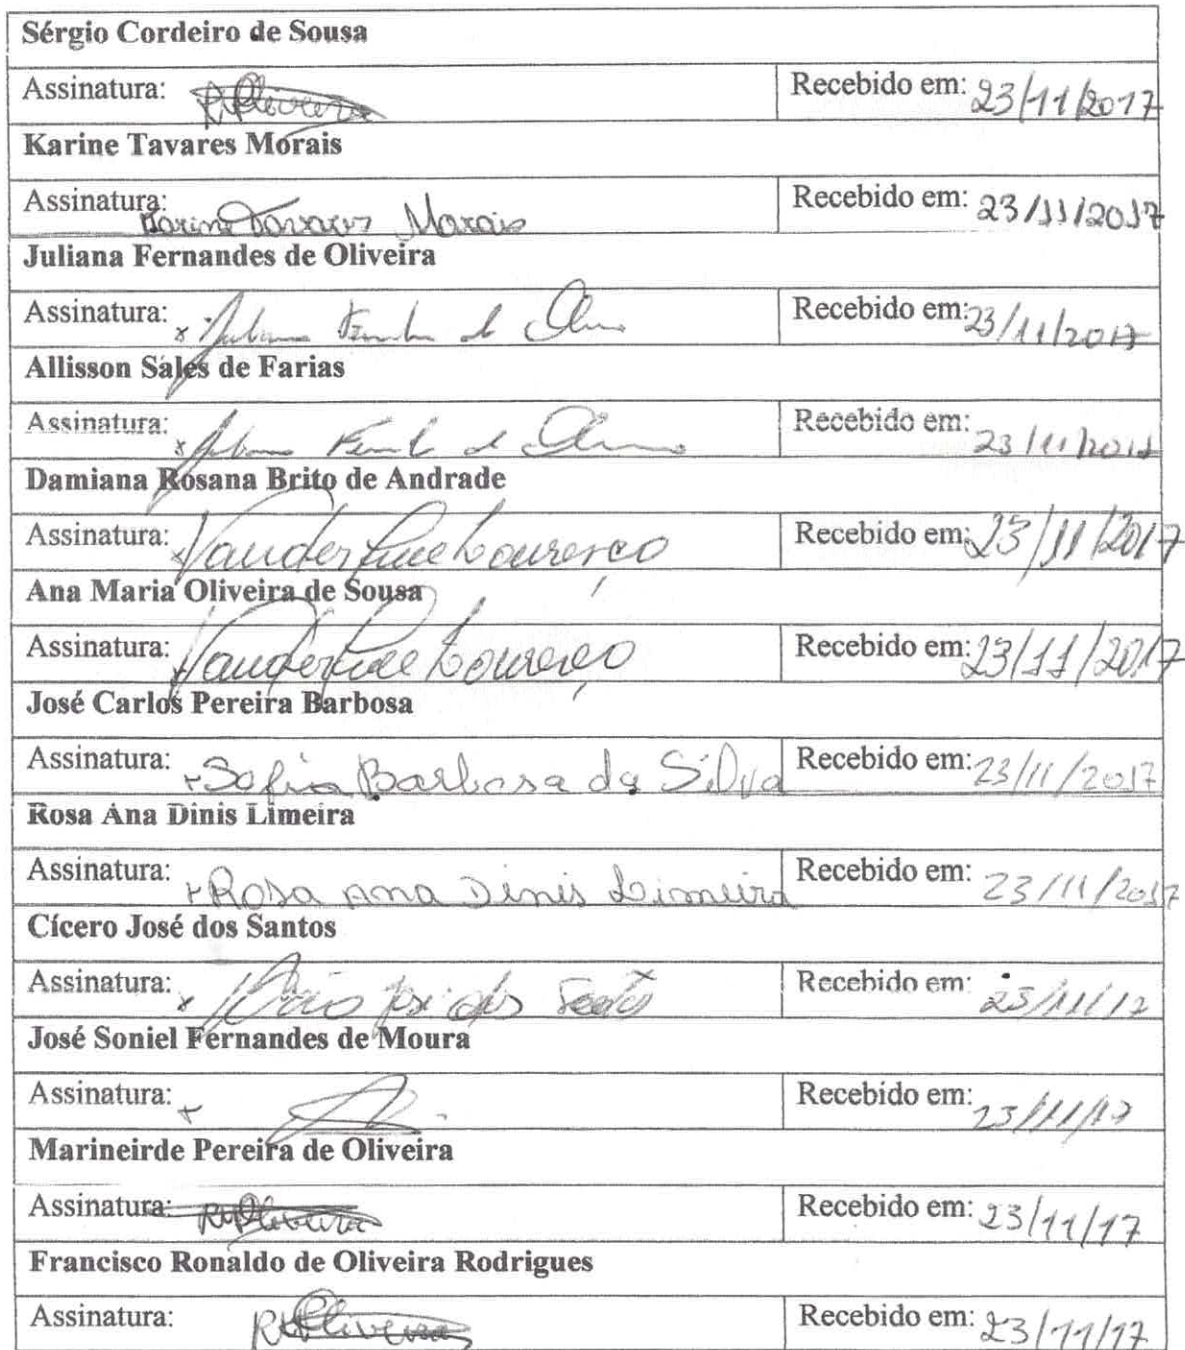 Sérgio Cordeiro de Sousa
Assinatura: Recebido em: 23/11/2017
Karine Tavares Morais
Assinatura: Karine Tavares Morais Recebido em: 23/11/2017
Juliana Fernandes de Oliveira
Assinatura: x Recebido em: 23/11/2017
Allisson Sales de Farias
Assinatura: x Recebido em: 23/11/2017
Damiana Rosana Brito de Andrade
Assinatura: x Lourenço Recebido em: 23/11/2017
Ana Maria Oliveira de Sousa
Assinatura: Lourenço Recebido em: 23/11/2017
José Carlos Pereira Barbosa
Assinatura: Sofia Barbosa da Silva Recebido em: 23/11/2017
Rosa Ana Dinis Limeira
Assinatura: Rosa Ana Dinis Limeira Recebido em: 23/11/2017
Cícero José dos Santos
Assinatura: x Recebido em: 23/11/17
José Soniel Fernandes de Moura
Assinatura: Recebido em: 23/11/17
Marineirde Pereira de Oliveira
Assinatura: Recebido em: 23/11/17
Francisco Ronaldo de Oliveira Rodrigues
Assinatura: Recebido em: 23/11/17